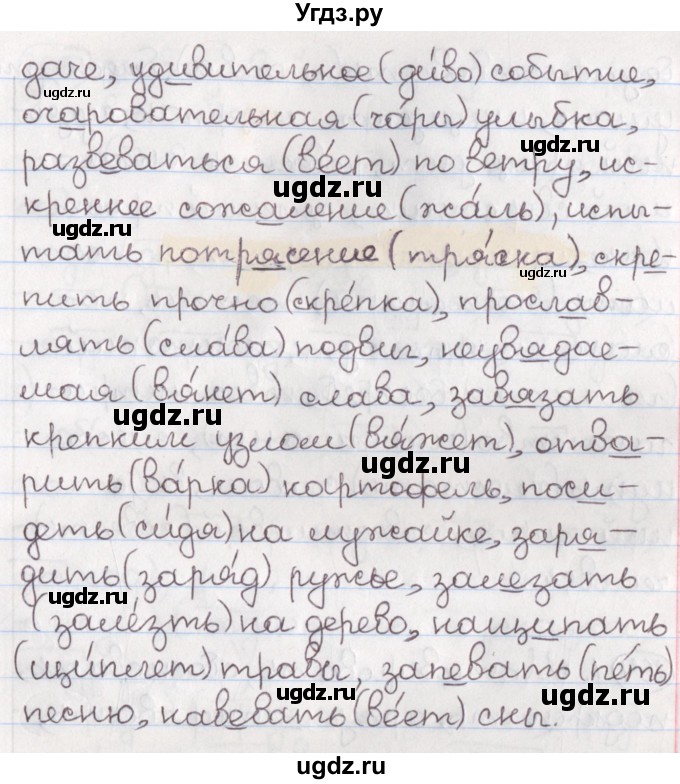 Угдз.ру
даче, удивительное (ди́во) событие,
очаровательная (ча́ры) улыбка,
развеваться (ве́ет) по ветру, ис-
креннее сожаление (жа́ль), испы-
тать потрясение (тря́ска), скре-
пить прочно (скре́пка), прослав-
лять (сла́ва) подвиг, неувядае-
мая (вя́нет) слава, завязать
крепким узлом (вя́жет), отва-
рить (ва́рка) картофель, поси-
деть (си́дя) на лужайке, заря-
дить (заря́д) ружье, залезать
(зале́зть) на дерево, нащипать
(щи́плет) травы, запевать (пе́ть)
песню, навевать (ве́ет) сны.
ugdz.ru
ugdz.ru
ugdz.ru
ugdz.ru
ugdz.ru
ugdz.ru
ugdz.ru
ugdz.ru
ugdz.ru
ugdz.ru
ugdz.ru
ugdz.ru
ugdz.ru
ugdz.ru